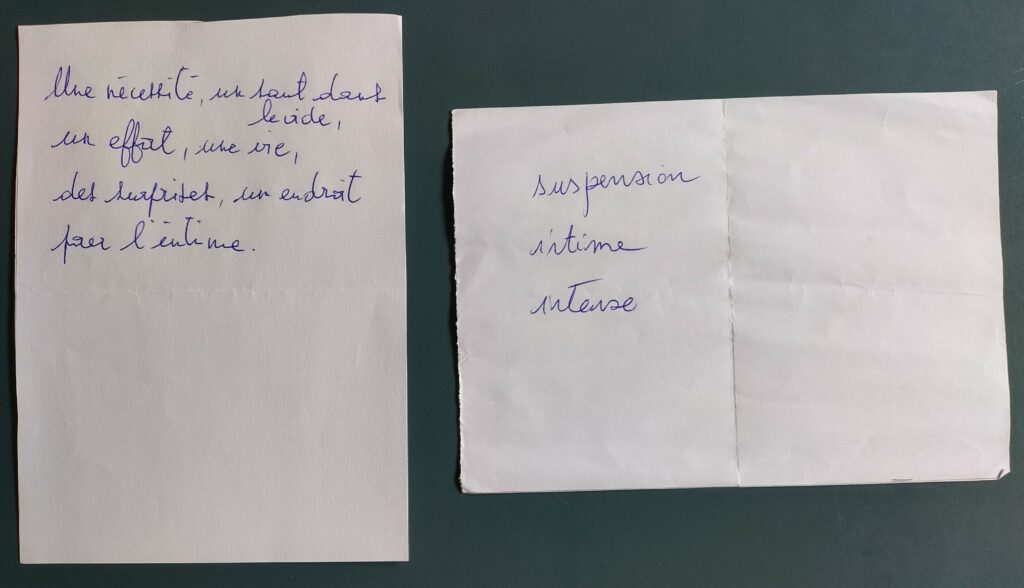 Une nécessité, un saut dans
le vide,
un effort, une vie,
des surprises, un endroit
pour l'intime.
suspension
intime
intense